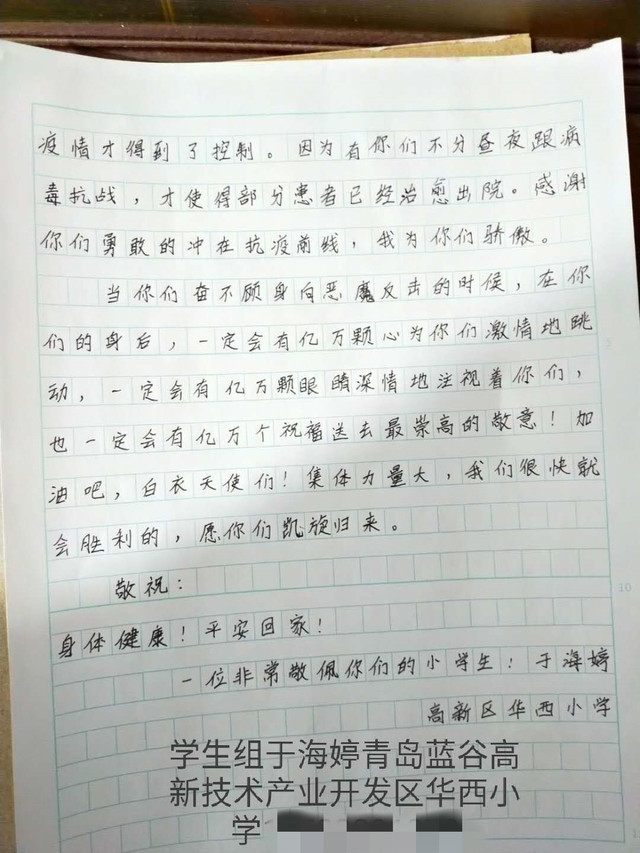 疫情才得到了控制。因为有你们不分昼夜跟病
毒抗战，才使得部分患者已经治愈出院。感谢
你们勇敢的冲在抗疫前线，我为你们骄傲。
当你们奋不顾身向恶魔反击的时候，在你
们的身后，一定会有亿万颗心为你们激情地跳
动，一定会有亿万颗眼睛深情地注视着你们，
也一定会有亿万个祝福送去最崇高的敬意！加
油吧，白衣天使们！集体力量大，我们很快就
会胜利的，愿你们凯旋归来。
敬祝：
身体健康！平安回家！
一位非常敬佩你们的小学生：于海婷
高新区华西小学
学生组于海婷青岛蓝谷高
新技术产业开发区华西小
学